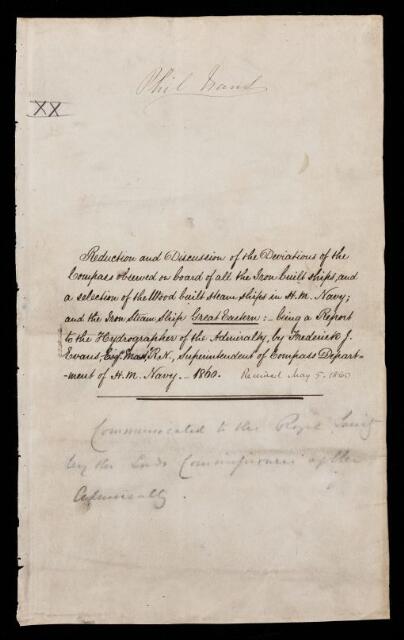 Phil Trans
XX
Reduction and Discussion of the Deviations of the
Compass observed on board of all the Iron built ships, and
a selection of the Wood built steam ships in H.M. Navy;
and the Iron Steam Ship Great Eastern:- being a Report
to the Hydrographer of the Admiralty, by Frederick J.
Evans, Esqr. R.N., Superintendent of Compass Depart-
-ment of H.M. Navy. - 1860. Received May 5. 1860
Communicated to the Royal Society
by the Lords Commissioners of the
Admiralty.